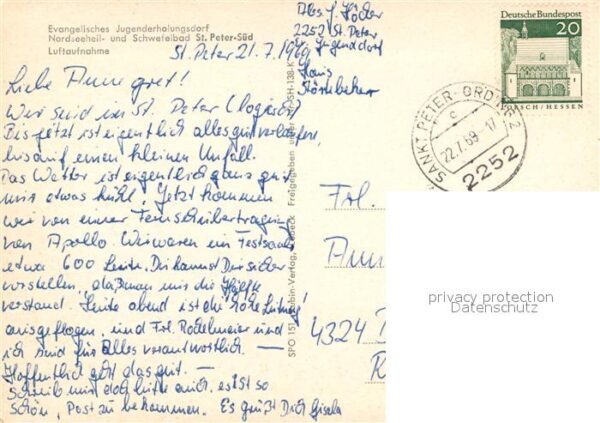 Evangelisches Jugenderholungsdorf
Nordseeheil- und Schwefelbad St. Peter-Süd
Luftaufnahme
St. Peter 21.7.1969
Abs. G. Höder
2252 St. Peter
Jugenddorf
Haus
Störtebeker
Liebe Annegret!
Wir sind in St. Peter
Bis jetzt ist eigentlich alles gut verlaufen,
bis auf einen kleinen Unfall.
Das Wetter ist eigentlich ganz gut
nur etwas kühl. Jetzt kommen
wir von einer Fernsehübertragung
von Apollo. Wir waren im Festsaal
etwa 600 Leute. Du kannst Dir sicher
vorstellen, daß man nur die Hälfte
verstand. Heute abend ist die rote Leitung
ausgeflogen, und Frl. Rodelmeier und
ich sind für alles verantwortlich. —
Hoffentlich geht das gut. —
Schreib mir doch bitte auch, es ist so
schön, Post zu bekommen. Es grüßt Dich Gisela
Freigegeben unter SH-138-K
SPO 151 Schöning-Verlag, Lübeck
Deutsche Bundespost
20
LORSCH/HESSEN
SANKT PETER-ORDING 2
c
22.7.69-17
2252
Frl.
Ann
4324
privacy protection
Datenschutz